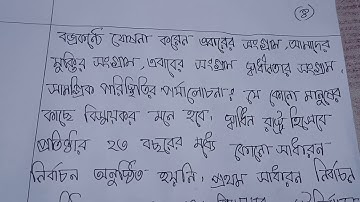 ৪
বজ্রকন্ঠে ঘোষনা করেন এবারের সংগ্রাম, আমাদের
মুক্তির সংগ্রাম, এবারের সংগ্রাম স্বাধীনতার সংগ্রাম।
সামগ্রিক পরিস্থিতির পর্যালোচনায় যে কোনো মানুষের
কাছে বিস্ময়কর মনে হবে। স্বাধীন রাষ্ট্র হিসেবে
প্রতিষ্ঠার ২৩ বছরের মধ্যে কোনো সাধারন
নির্বাচন অনুষ্ঠিত হয়নি। প্রথম সাধারন নির্বাচন